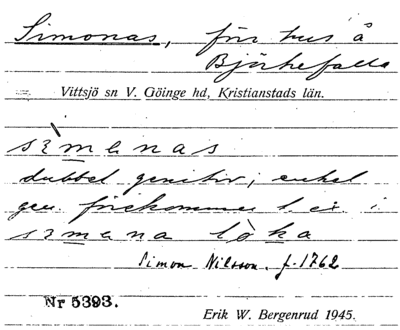 Simonas, förr hus å
Björkefalla
Vittsjö sn V. Göinge hd, Kristianstads län.
sìmanas
dubbel genitiv; enkel
gen. förekommer t. ex. i
sìmana lòka
Simon Nilsson f. 1762
Nr 5393.
Erik W. Bergenrud 1945.